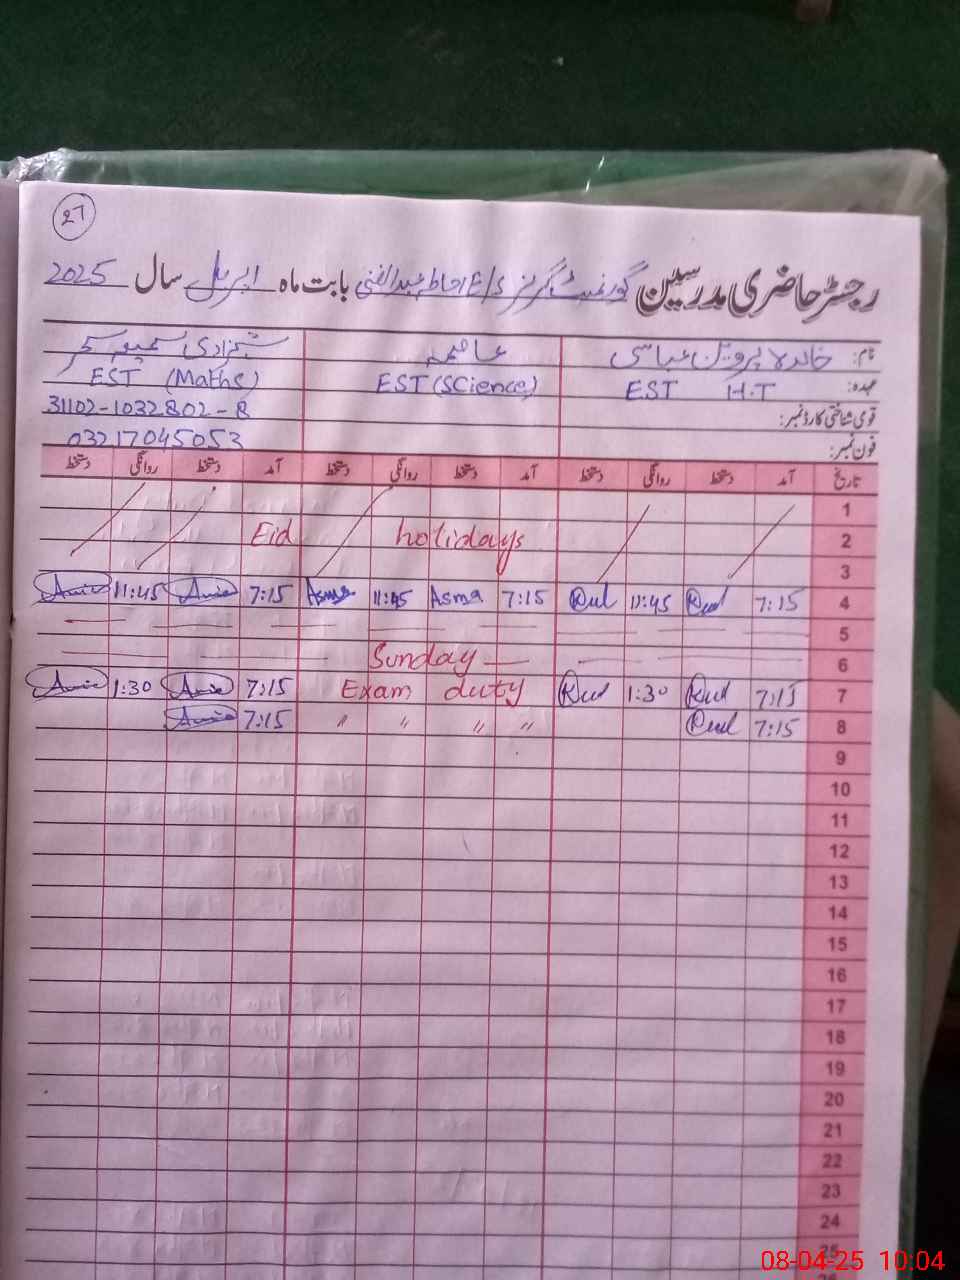 27
رجسٹر حاضری مدرسین گورنمنٹ گرلز E/S احاطہ عبدالغنی بابت ماہ اپریل سال 2025
نام: خالدہ پروین عباسی عاصمہ شہزادی
عہدہ: EST H.T EST (Science) EST (Maths)
قومی شناختی کارڈ نمبر: 31102-1032802-8
فون نمبر: 03217045053
تاریخ آمد دستخط روانگی دستخط آمد دستخط روانگی دستخط آمد دستخط روانگی دستخط
1
Eid holidays 2
3
11:45 7:15 Asma 11:45 Asma 7:15 11:45 7:15 4
5
Sunday 6
1:30 7:15 Exam duty 1:30 7:15 7
7:15 " " " " 7:15 8
9
10
11
12
13
14
15
16
17
18
19
20
21
22
23
24
25
08-04-25 10:04